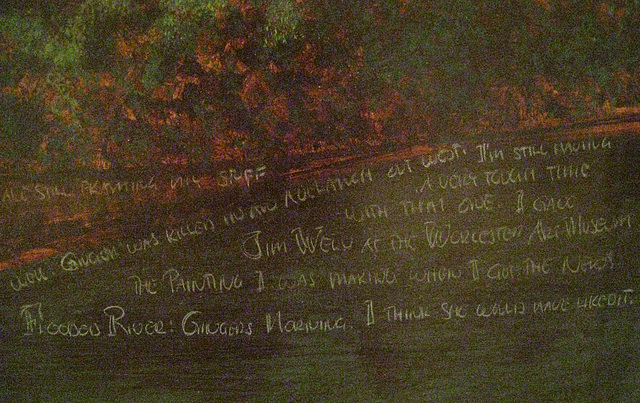 ALL STILL FRAMING MY STUFF
WELL GINGER WAS KILLED IN AN AVALANCH OUT WEST. I'M STILL HAVING
A VERY TOUGH TIME
WITH THAT ONE. I
JIM WELU AT THE WORCESTER ART MUSEUM
THE PAINTING I WAS MAKING WHEN I GOT THE NEWS!
FLOODED RIVER: GINGERS MORNING. I THINK SHE WOULD HAVE LIKED IT.